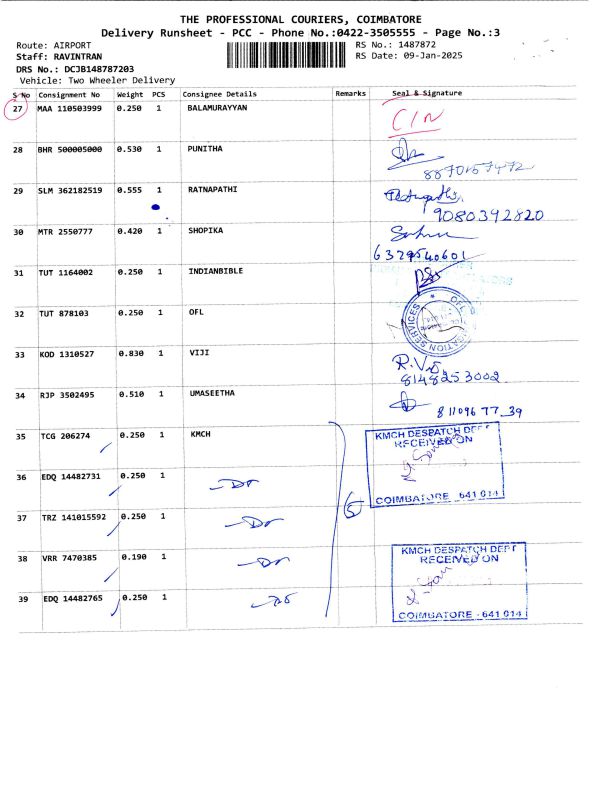 THE PROFESSIONAL COURIERS, COIMBATORE
Delivery Runsheet - PCC - Phone No.:0422-3505555 - Page No.:3
Route: AIRPORT
RS No.: 1487872
Staff: RAVINTRAN
RS Date: 09-Jan-2025
DRS No.: DCJB148787203
Vehicle: Two Wheeler Delivery
S No Consignment No Weight PCS Consignee Details Remarks Seal & Signature
27 MAA 110503999 0.250 1 BALAMURAYYAN C/N
28 BHR 500005000 0.530 1 PUNITHA
8870157472
29 SLM 362182519 0.555 1 RATNAPATHI
9080392820
30 MTR 2550777 0.420 1 SHOPIKA
6379540601
31 TUT 1164002 0.250 1 INDIANBIBLE
32 TUT 878103 0.250 1 OFL
OFL
SERVICES
33 KOD 1310527 0.830 1 VIJI
8148253002
34 RJP 3502495 0.510 1 UMASEETHA
8110967739
35 TCG 206274 0.250 1 KMCH
KMCH DESPATCH DEPT
RECEIVED ON
COIMBATORE - 641 014
36 EDQ 14482731 0.250 1 -Do
5
37 TRZ 141015592 0.250 1 -Do
38 VRR 7470385 0.190 1 -Do
KMCH DESPATCH DEPT
RECEIVED ON
COIMBATORE - 641 014
39 EDQ 14482765 0.250 1 -Do